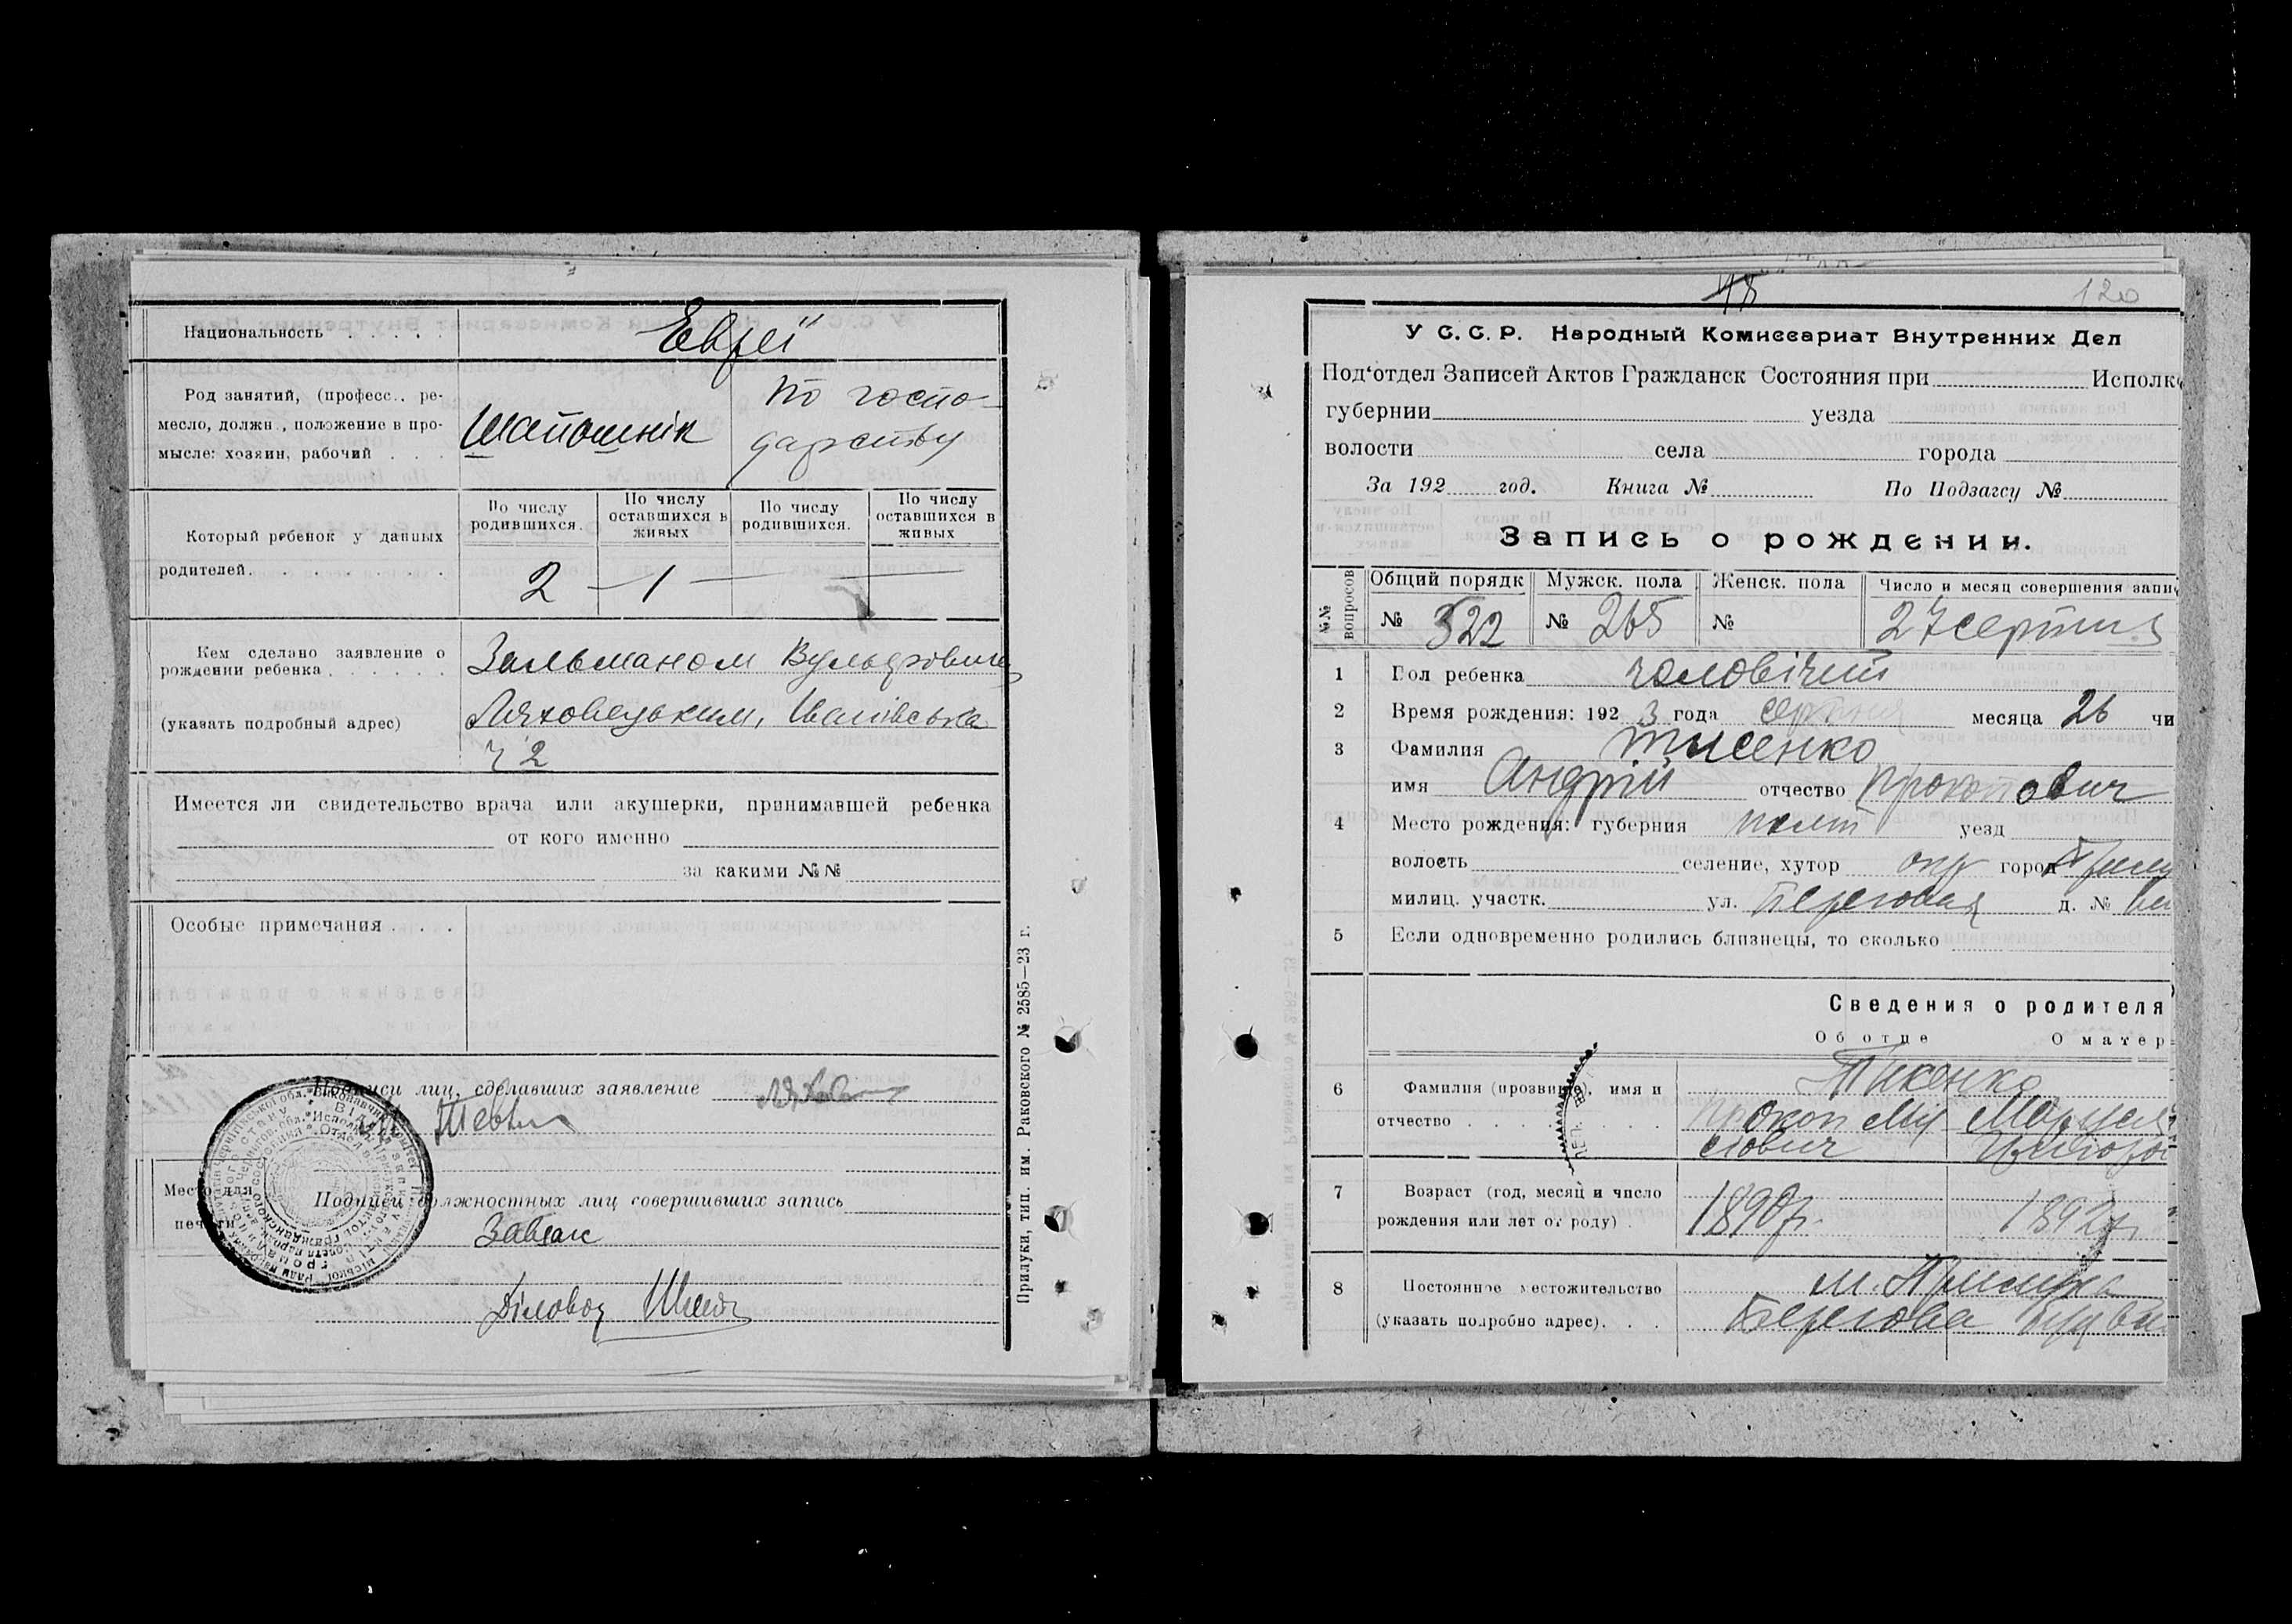 Национальность . . . . .
Евреї
Род занятий, (професс., ре-
месло, должн., положение в про-
мысле: хозяин, рабочий . . .
Шапошнік
по госпо-
дарству
Который ребенок у данных
родителей. . . . . . . .
По числу
родившихся.
По числу
оставшихся в
живых
По числу
родившихся.
По числу
оставшихся в
живых
2 — 1 — —
Кем сделано заявление о
рождении ребенка . . . . . .
(указать подробный адрес)
Зальманом Вульфовичем
Ляховецьким, Іванівська
ч 2
Имеется ли свидетельство врача или акушерки, принимавшей ребенка
от кого именно
за какими №№
Особые примечания . . . .
Подписи лиц, сделавших заявление
Место для
печати
Подписи должностных лиц совершивших запись
Завзагс
Діловод
Прилуки, тип. им. Раковского № 2585—23 г.
48
120
У С. С. Р. Народный Комиссариат Внутренних Дел
Под‘отдел Записей Актов Гражданск Состояния при Исполк
губернии уезда
волости села города
За 192 год. Книга № По Подзагсу №
Запись о рождении.
№№ вопросов
Общий порядк Мужск. пола Женск. пола Число и месяц совершения запи
№ 322 № 265 № 27 серпня
1 Пол ребенка чоловічий
2 Время рождения: 192 3 года серпня месяца 26 чи
3 Фамилия Тисенко
имя Андрій отчество Прокопович
4 Место рождения: губерния Полт уезд
волость селение, хутор окр город Прилу
милиц. участк. ул. Береговая д. №
5 Если одновременно родились близнецы, то сколько
Сведения о родителя
Об отце О матер
6 Фамилия (прозвище), имя и
отчество . . . . . . . . .
Прокоп
7 Возраст (год, месяц и число
рождения или лет от роду) .
1890р. 1892р.
8 Постоянное местожительство
(указать подробно адрес). . .
м. Прилука
Берегова